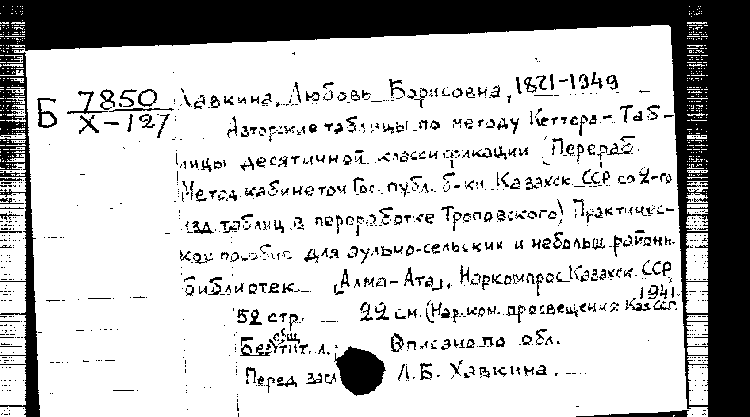 Б 7850 Хавкина, Любовь Борисовна, 1871-1949
Х-127
Авторские таблицы по методу Кеттера - Таб-
лицы десятичной классификации (Перераб.
Метод. кабинетом Гос. публ. б-ки Казахск. ССР со 2-го
изд. таблиц в переработке Троповского) Практичес-
кое пособие для аульно-сельских и небольш. районн.
библиотек [Алма-Ата], Наркомпрос Казахск. ССР,
1941.
52 стр. 22 см. (Нар. ком. просвещения Каз ССР.
Без общ. тит. л. Описано по обл.
Перед загл Л.Б. Хавкина.